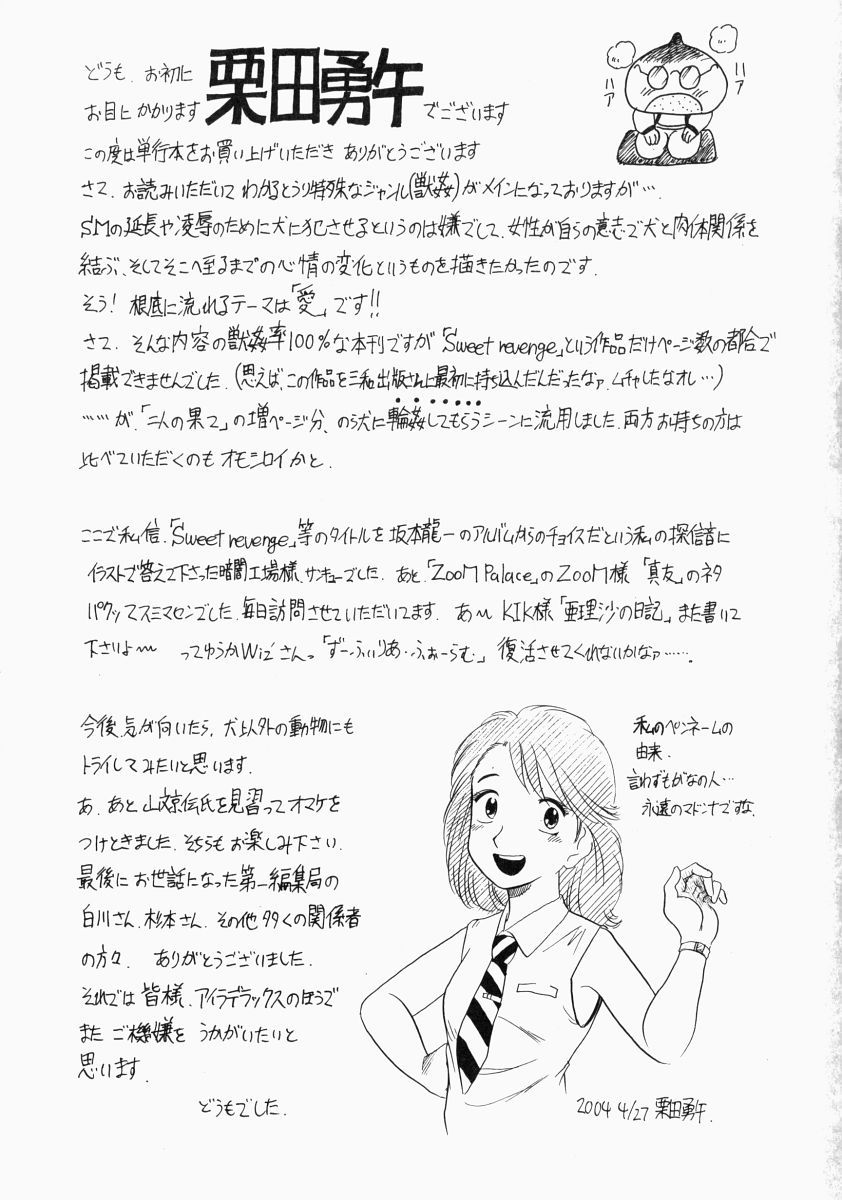 どうも、お初に
お目にかかります
栗田勇午
でございます
ハア
ハア
この度は単行本をお買い上げいただき ありがとうございます
さて、お読みいただいて わかるとうり特殊なジャンル(獣姦)がメインになっておりますが…。
SMの延長や凌辱のために犬に犯させるというのは嫌でして、女性が自らの意志で犬と肉体関係を
結ぶ、そしてそこへ至るまでの心情の変化というものを描きたかったのです。
そう! 根底に流れるテーマは「愛」です!!
さて、そんな内容の獣姦率100%な本刊ですが「Sweet revenge」という作品だけページ数の都合で
掲載できませんでした。(思えば、この作品を三和出版さんに最初に持ち込んだんだったなァ、ムチャしたなオレ…)
……が、「二人の果て」の増ページ分、のら犬に輪姦してもらうシーンに流用しました。両方お持ちの方は
比べていただくのも オモシロイかと。
ここで私信、「Sweet revenge」等のタイトルを坂本龍一のアルバムからのチョイスだという私の探信音に
イラストで答えて下さった暗闇工場様、サンキューでした。あと、「ZooM Palace」のZooM様「真友」のネタ
パクッてスミマセンでした、毎日訪問させていただいてます。 あ〜 KIK様「亜理沙の日記」また書いて
下さいよ〜 ってゆうかWiz'さんっ「ずーふぃりあ・ふぉーらむ」復活させてくれないかなァ……。
今後、気が向いたら、犬以外の動物にも
トライしてみたいと思います。
あ、あと 山文京伝氏を見習って オマケを
つけときました。そちらもお楽しみ下さい。
最後にお世話になった第一編集局の
白川さん、杉本さん、その他 多くの関係者
の方々、 ありがとうございました。
それでは皆様、アイラデラックスのほうで
また ご機嫌を うかがいたいと
思います。
どうもでした。
私のペンネームの
由来。
言わずもがなの人…
永遠のマドンナですな。
2004 4/27 栗田勇午。